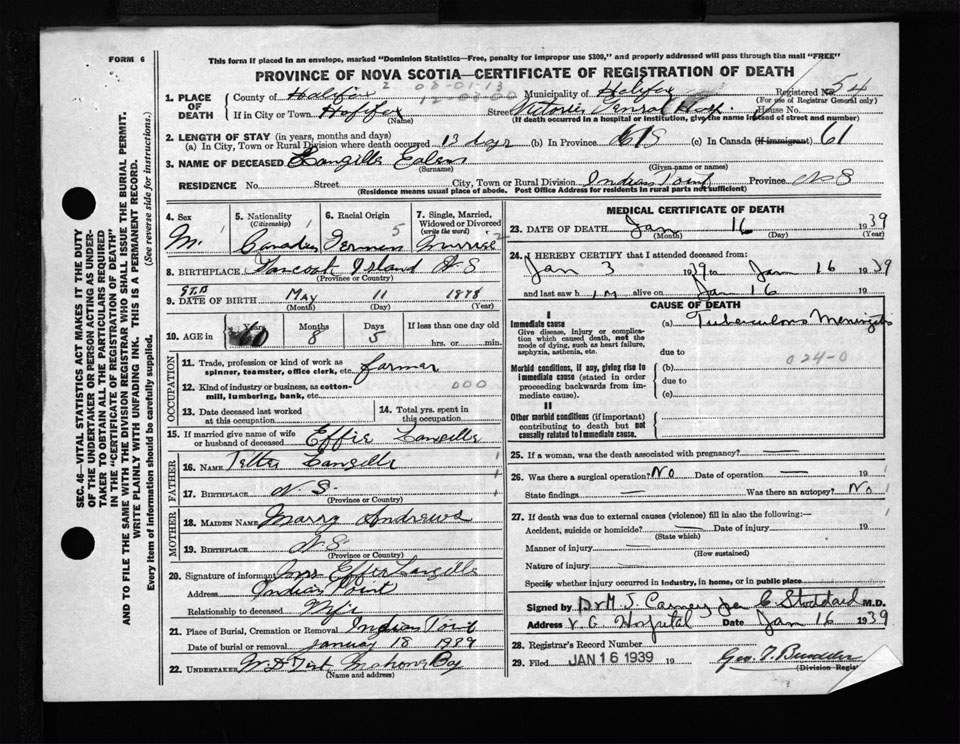 FORM 6
This form if enclosed in an envelope, marked "Dominion Statistics—Free, penalty for improper use $300," and properly addressed will pass through the mail "FREE"
PROVINCE OF NOVA SCOTIA—CERTIFICATE OF REGISTRATION OF DEATH
SEC. 46—VITAL STATISTICS ACT MAKES IT THE DUTY
OF THE UNDERTAKER OR PERSON ACTING AS UNDER-
TAKER TO OBTAIN ALL THE PARTICULARS REQUIRED
IN THE "CERTIFICATE OF REGISTRATION OF DEATH"
AND TO FILE THE SAME WITH THE DIVISION REGISTRAR WHO SHALL ISSUE THE BURIAL PERMIT.
WRITE PLAINLY WITH UNFADING INK. THIS IS A PERMANENT RECORD.
Every item of information should be carefully supplied. (See reverse side for instructions.)
2 08-01-13
1. PLACE OF DEATH County of Halifax Municipality of Halifax Registered No. 54
12-03-00 (For use of Registrar General only)
If in City or Town Halifax (Name) Street Victoria General Hosp. House No.
(If death occurred in a hospital or institution, give the name instead of street and number)
2. LENGTH OF STAY (in years, months and days)
(a) In City, Town or Rural Division where death occurred 13 days (b) In Province (c) In Canada (if immigrant) 61
3. NAME OF DECEASED Langille (Surname) (Given name or names)
RESIDENCE No. Street City, Town or Rural Division Indian Point Province N S
(Residence means usual place of abode. Post Office Address for residents in rural parts not sufficient)
4. Sex M.
5. Nationality (Citizenship) Canadian
6. Racial Origin German 5
7. Single, Married, Widowed or Divorced (write the word) 2
8. BIRTHPLACE Tancook Island N S
9. DATE OF BIRTH May (Month) 11 (Day) 1878 (Year)
10. AGE in Years 60 Months 8 Days 5 If less than one day old hrs. or min.
OCCUPATION
11. Trade, profession or kind of work as spinner, teamster, office clerk, etc. farmer
12. Kind of industry or business, as cotton-mill, lumbering, bank, etc. 000
13. Date deceased last worked at this occupation
14. Total yrs. spent in this occupation
15. If married give name of wife or husband of deceased Effie Langille
FATHER
16. NAME Langille
17. BIRTHPLACE N. S.
(Province or Country)
MOTHER
18. MAIDEN NAME Marry Andrews
19. BIRTHPLACE N S
(Province or Country)
20. Signature of informant Mrs Effie Langille
Address Indian Point
Relationship to deceased Wife
21. Place of Burial, Cremation or Removal Indian Point
Date of burial or removal January 18 1939
22. UNDERTAKER Mahone Bay
(Name and address)
MEDICAL CERTIFICATE OF DEATH
23. DATE OF DEATH Jan (Month) 16 (Day) 1939 (Year)
24. I HEREBY CERTIFY that I attended deceased from:
Jan 3 1939 to Jan 16 1939
and last saw h im alive on Jan 16 19
CAUSE OF DEATH
I
Immediate cause (a) Tuberculous Meningitis
Give disease, injury or complication which caused death, not the mode of dying, such as heart failure, asphyxia, asthenia, etc.
due to
024-0
Morbid conditions, if any, giving rise to immediate cause (stated in order proceeding backwards from immediate cause). (b)
due to
(c)
II
Other morbid conditions (if important) contributing to death but not causally related to immediate cause.
25. If a woman, was the death associated with pregnancy? —
26. Was there a surgical operation? No Date of operation — 19
State findings — Was there an autopsy? No
27. If death was due to external causes (violence) fill in also the following:—
Accident, suicide or homicide? — Date of injury 19
(State which)
Manner of injury —
(How sustained)
Nature of injury —
Specify whether injury occurred in industry, in home, or in public place
Signed by Dr M. J. Carney per C Stoddard M.D.
Address V. G. Hospital Date Jan 16 1939
28. Registrar's Record Number
29. Filed JAN 16 1939 19
(Division Registrar)